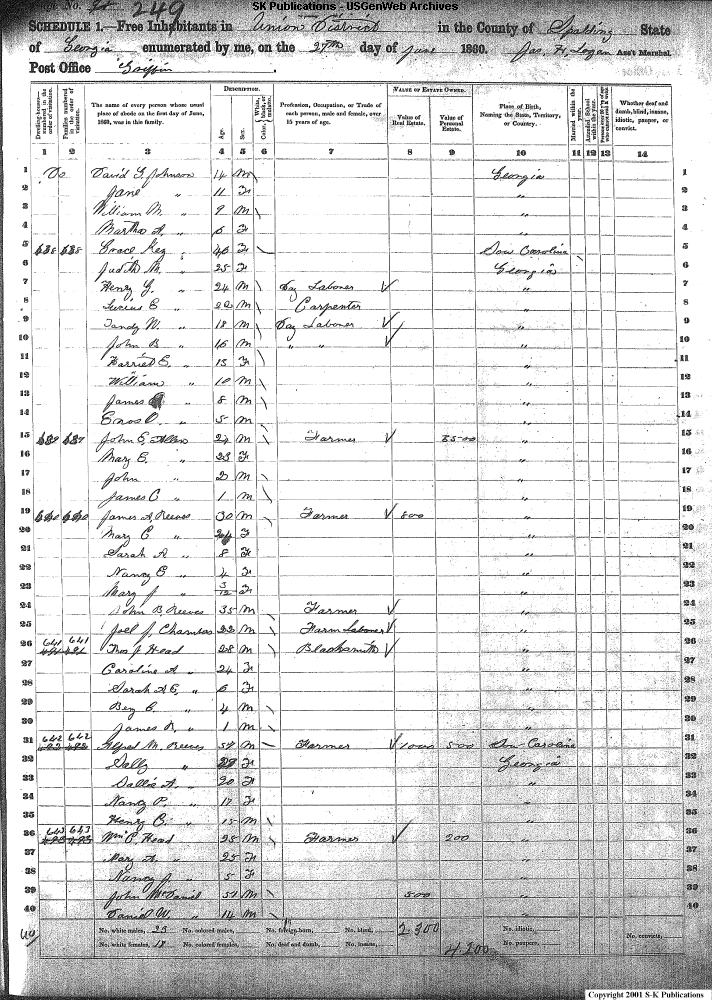 SK Publications - USGenWeb Archives
Page No. 249
SCHEDULE 1.—Free Inhabitants in Union District in the County of Spalding State
of Georgia enumerated by me, on the 27th day of June 1860. Jas. H. Logan Ass't Marshal.
Post Office Griffin
Dwelling-houses—numbered in the order of visitation. Families numbered in the order of visitation. The name of every person whose usual place of abode on the first day of June, 1860, was in this family. DESCRIPTION. Age. Sex. Color, White, black, or mulatto. Profession, Occupation, or Trade of each person, male and female, over 15 years of age. VALUE OF ESTATE OWNED. Value of Real Estate. Value of Personal Estate. Place of Birth, Naming the State, Territory, or Country. Married within the year. Attended School within the year. Whether deaf and dumb, blind, insane, idiotic, pauper, or convict.
1 2 3 4 5 6 7 8 9 10 11 12 13 14
1 Do David G. Johnson 14 M Georgia 1
2 Jane " 11 F " 2
3 William M. " 9 M " 3
4 Martha A. " 6 F " 4
5 638 638 Grace Key " 46 F Sou Carolina 5
6 Judith M. " 25 F Georgia 6
7 Henry G. " 24 M Day Laborer " 7
8 Lucius E " 22 M Carpenter " 8
9 Tandy W. " 18 M Day Laborer " 9
10 John B " 16 M " " " 10
11 Harriet E. " 13 F " 11
12 William " 10 M " 12
13 James " 8 M " 13
14 Enos O. " 5 M " 14
15 639 639 John E. Allen 24 M Farmer " 15
16 Mary E. " 23 F " 16
17 John " 2 M " 17
18 James C " 1 M " 18
19 640 640 James A. Reeves 30 M Farmer 800 " 19
20 Mary C " 24 F " 20
21 Sarah A " 8 F " 21
22 Nancy E " 4 F " 22
23 Mary J " 3/12 F " 23
24 John B. Reeves 35 M Farmer " 24
25 Joel J. Chambers 22 M Farm Laborer " 25
26 641 641 Thos J Head 28 M Blacksmith " 26
27 Caroline A " 24 F " 27
28 Sarah A E, " 6 F " 28
29 Benj C " 4 M " 29
30 James R. " 1 M " 30
31 642 642 Alfred M. Reeves 54 M Farmer 1000 500 Sou Carolina 31
32 Sally " F Georgia 32
33 Sallie A. " 20 F " 33
34 Nancy P. " 17 F " 34
35 Henry C. " 15 M " 35
36 643 643 Wm P. Head 25 M Farmer 200 " 36
37 Mary A. " 25 F " 37
38 Nancy J " 5 F " 38
39 John McDaniel 51 M 500 " 39
40 Daniel W. " 14 M " 40
No. white males, 23 No. colored males, No. foreign born, No. blind, 2 300 No. idiotic,
No. white females, 18 No. colored females, No. deaf and dumb, No. insane, 4 200 No. paupers, No. convicts,
Copyright 2001 S-K Publications